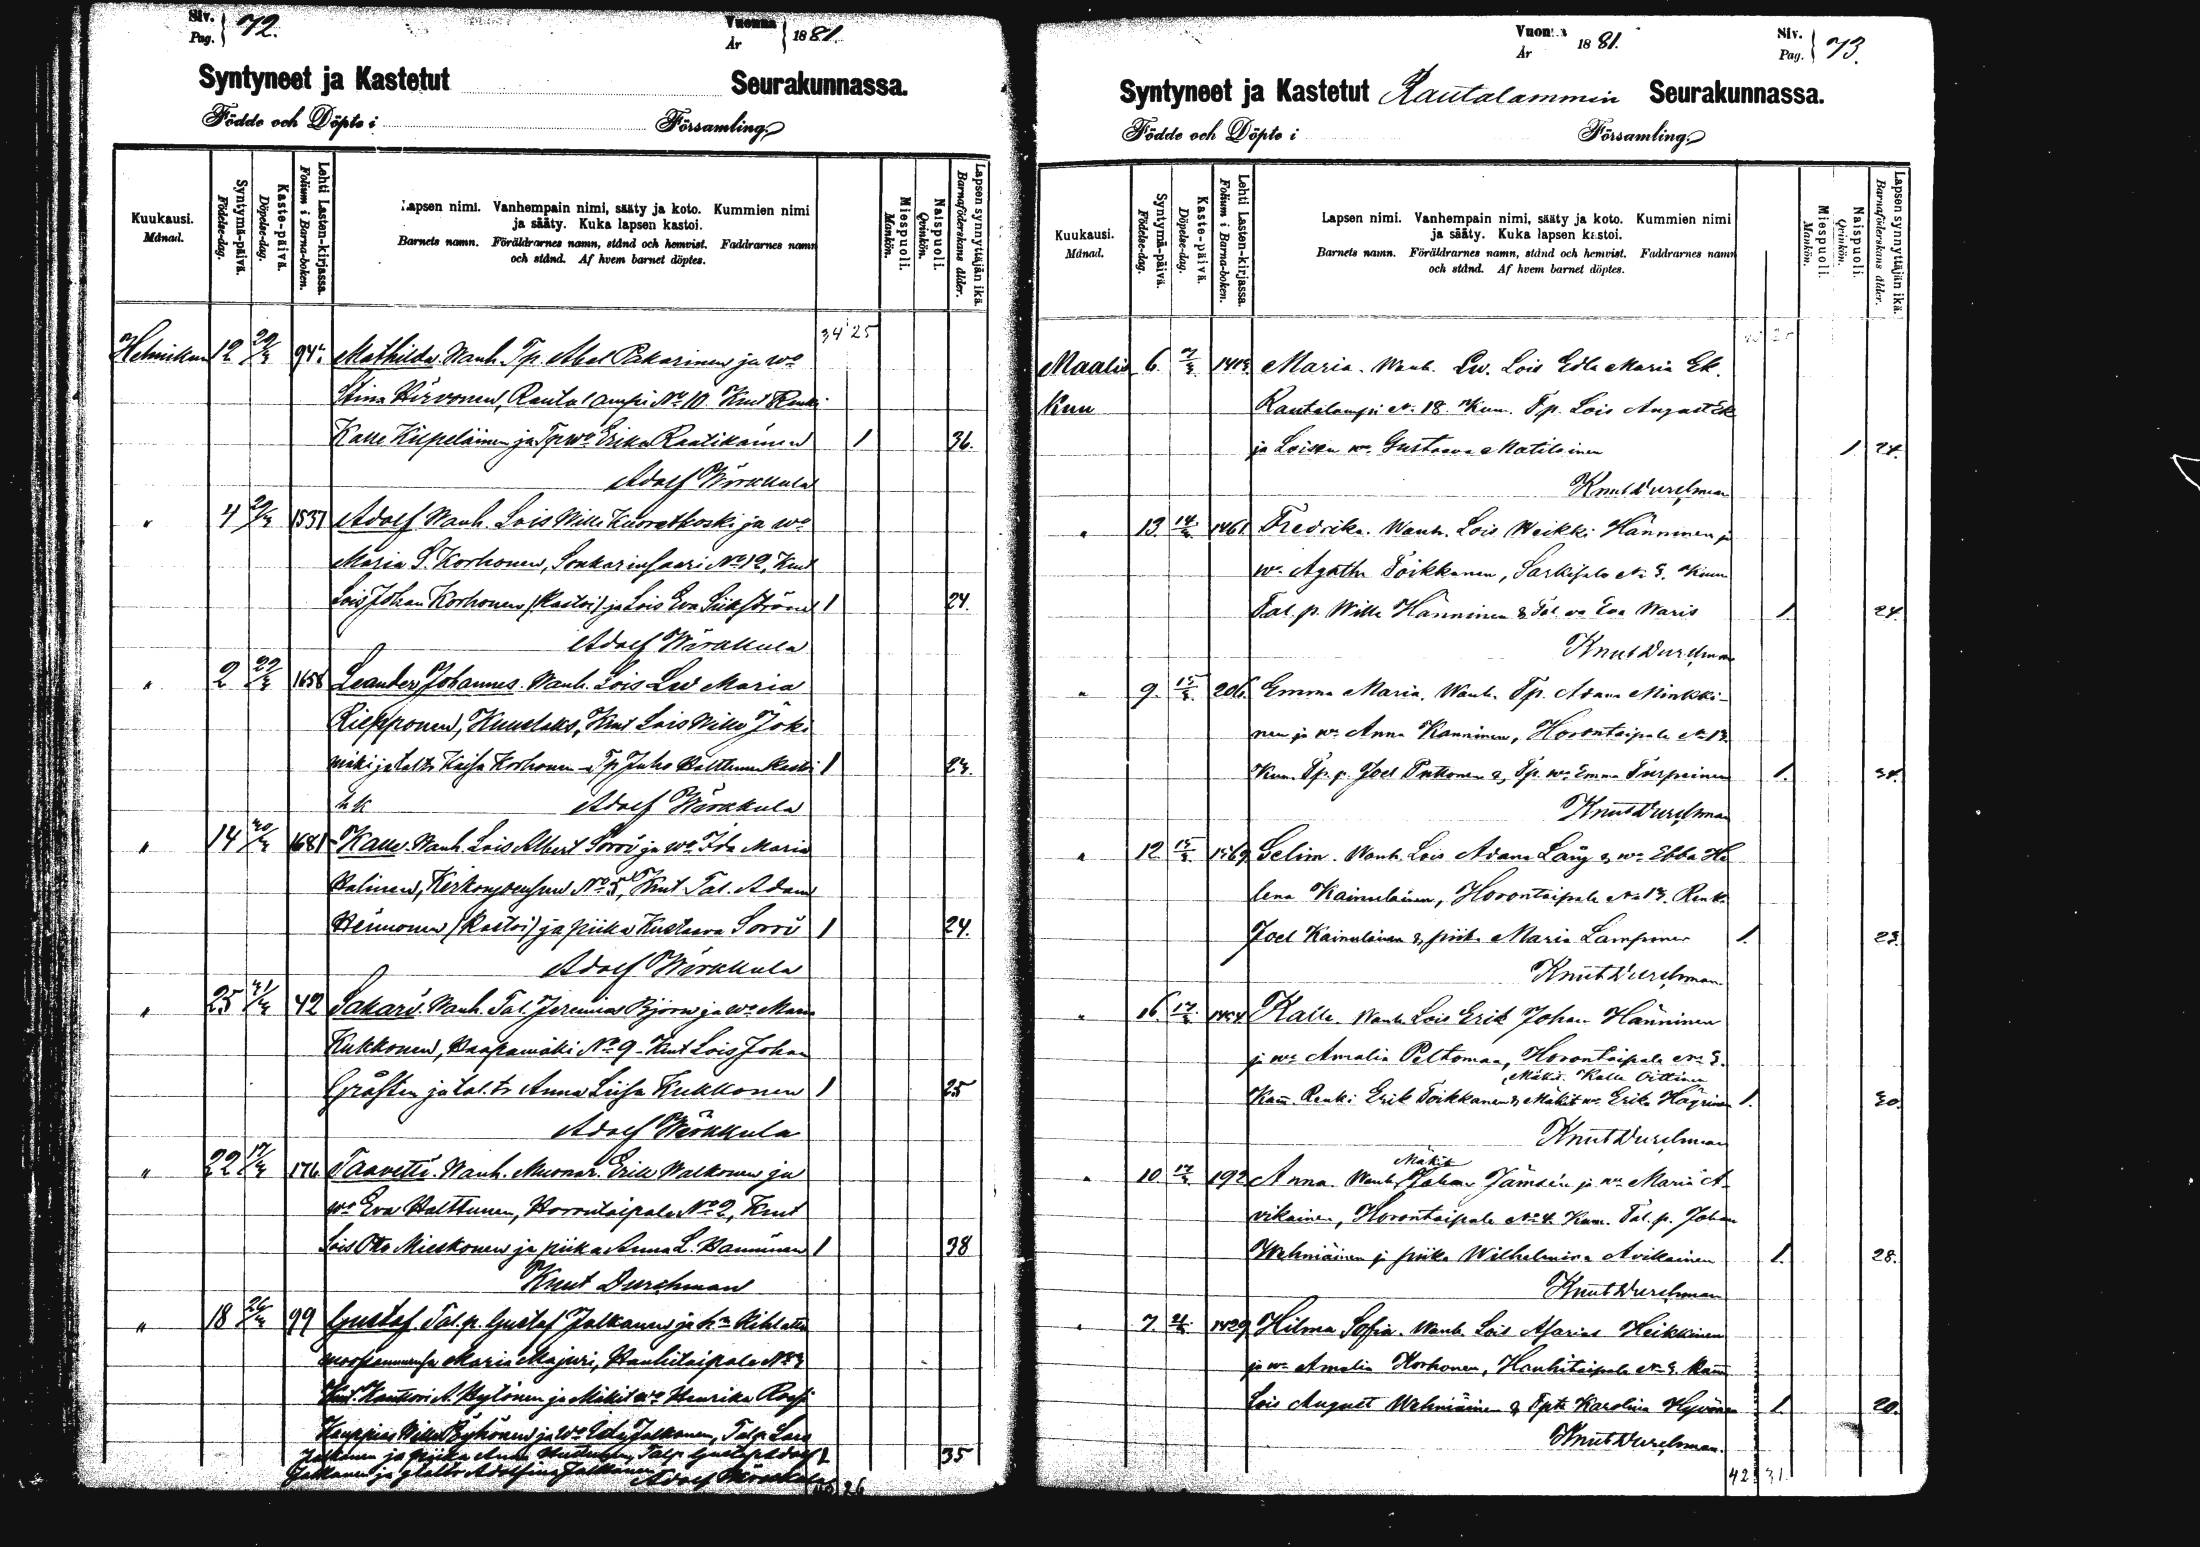 Siv.
Pag. } 72.
Vuonna
År } 1881.
Syntyneet ja Kastetut Seurakunnassa.
Födde och Döpte i Församling
Kuukausi.
Månad.
Syntymä-päivä.
Födelse-dag.
Kaste-päivä.
Döpelse-dag.
Lehti Lasten-kirjassa.
Folium i Barna-boken.
Lapsen nimi. Vanhempain nimi, sääty ja koto. Kummien nimi
ja sääty. Kuka lapsen kastoi.
Barnets namn. Föräldrarnes namn, stånd och hemvist. Faddrarnes namn
och stånd. Af hvem barnet döptes.
Miespuoli.
Mankön.
Naispuoli.
Qvinkön.
Lapsen synnyttäjän ikä.
Barnaföderskans ålder.
34 25
Helmikuu 12 94 Mathilda. Wanh. Tp. Abel Pakarinen ja wo
Stina Hirvonen, Rautalampi No 10. Kmt Renki
Kalle Kilpeläinen ja Tp wo Erika Raatikainen 1 36.
Adolf Wärkkula
" 4 1537 Adolf Wanh. Lois Wille Kuorekoski ja wo
Maria S. Korhonen, Sonkarinsaari No 12, Kmt
Lois Johan Korhonen (kastoi) ja Lois Eva Sükström 1 24.
Adolf Wärkkula
" 2 1658 Leander Johannes. Wanh. Lois Lw Maria
Riepponen, Kmt Lois Wille Joki
mäki ja Kaisa Korhonen Tp Juho 1 23.
Adolf Wärkkula
" 14 1681 Kalle. Wanh. Lois Albert Sorri ja wo Ida Maria
No 5, Kmt Tal. Adam
(kastoi) ja piika Kustaava Sorri 1 24.
Adolf Wärkkula
" 25 42 Sakari. Wanh. Tal. Jeremias Björn ja wo Maria
Kukkonen, Haapamäki No 9. Kmt Lois Johan
Gråsten ja tal. tr Anna Liisa Kukkonen 1 25
Adolf Wärkkula
" 22 17/3 176 Taavetti. Wanh. Muonar. Erik Walkonen ja
wo Eva Halttunen, Horontaipale No 2, Kmt
Lois Otto Mieskonen ja piika Anna L. Hänninen 1 38
Knut Durchman
" 18 26/3 99 Gustaf. Tal. p. Gustaf Jalkanen ja
Maria Majuri, Hanhitaipale No 3
Kmt. Kanttori A. Hytönen ja Mäkit wo Henrika Rossi
Kauppias Wille ja wo Jalkanen, Talp Lars
Jalkanen ja piika Anna Talp Gustaf Adolf 1 35
Jalkanen ja Adolfina Jalkanen Adolf Wärkkula
26
Vuonna
År 1881.
Siv.
Pag. } 73.
Syntyneet ja Kastetut Rautalammin Seurakunnassa.
Födde och Döpte i Församling
Kuukausi.
Månad.
Syntymä-päivä.
Födelse-dag.
Kaste-päivä.
Döpelse-dag.
Lehti Lasten-kirjassa.
Folium i Barna-boken.
Lapsen nimi. Vanhempain nimi, sääty ja koto. Kummien nimi
ja sääty. Kuka lapsen kastoi.
Barnets namn. Föräldrarnes namn, stånd och hemvist. Faddrarnes namn
och stånd. Af hvem barnet döptes.
Miespuoli.
Mankön.
Naispuoli.
Qvinkön.
Lapsen synnyttäjän ikä.
Barnaföderskans ålder.
Maalis 6. 7/3 Maria. Wanh. Lw. Lois Edla Maria Ek.
Kuu Rautalampi No 18. Kum. Tp. Lois August Ek
ja Loisen wo Gustaava Matilainen 1 24.
Knut Durchman
" 13. 14/3 1461 Fredrika. Wanh. Lois Heikki Hänninen ja
wo Agatha Toikkanen, Särkisalo No 3. Kum
Tal. p. Wille Hänninen & Tal wo Eva Waris 1. 24.
Knut Durchman
" 9. 15/3 206. Emma Maria. Wanh. Tp. Adam Minkki-
nen ja wo Anna Kanninen, Horontaipale No 13.
Kum. Tp. p. Joel Puttonen & Tp. wo Emma Turpeinen 1. 34.
Knut Durchman
" 12. 15/3 1569 Selim. Wanh. Lois Adam Lång & wo Ebba He
lena Kainulainen, Horontaipale No 13. Renk.
Joel Kainulainen & piika Maria Lamponen 1. 23.
Knut Durchman
" 16. 17/3 1454 Kalle. Wanh. Lois Erik Johan Hänninen
ja wo Amalia Peltomaa, Horontaipale No 3.
Mäkit. Kalle Oittinen
Kum. Renki Erik Toikkanen & Mäkit wo Erika Häyrinen 1. 30.
Knut Durchman
Mäkit
" 10. 17/3 192 Anna. Wanh. Johan Jämsén ja wo Maria A-
vikainen, Horontaipale No 4. Kum. Tal. p. Johan
Wehniäinen ja piika Wilhelmina Avikainen 1. 28.
Knut Durchman
" 7. 1429 Hilma Sofia. Wanh. Lois Asarias Heikkinen
ja wo Amalia Korhonen, Hanhitaipale No 3. Kum
Lois August Wehniäinen & Tptr Karolina Hyvönen 1. 20.
Knut Durchman.
42 31.